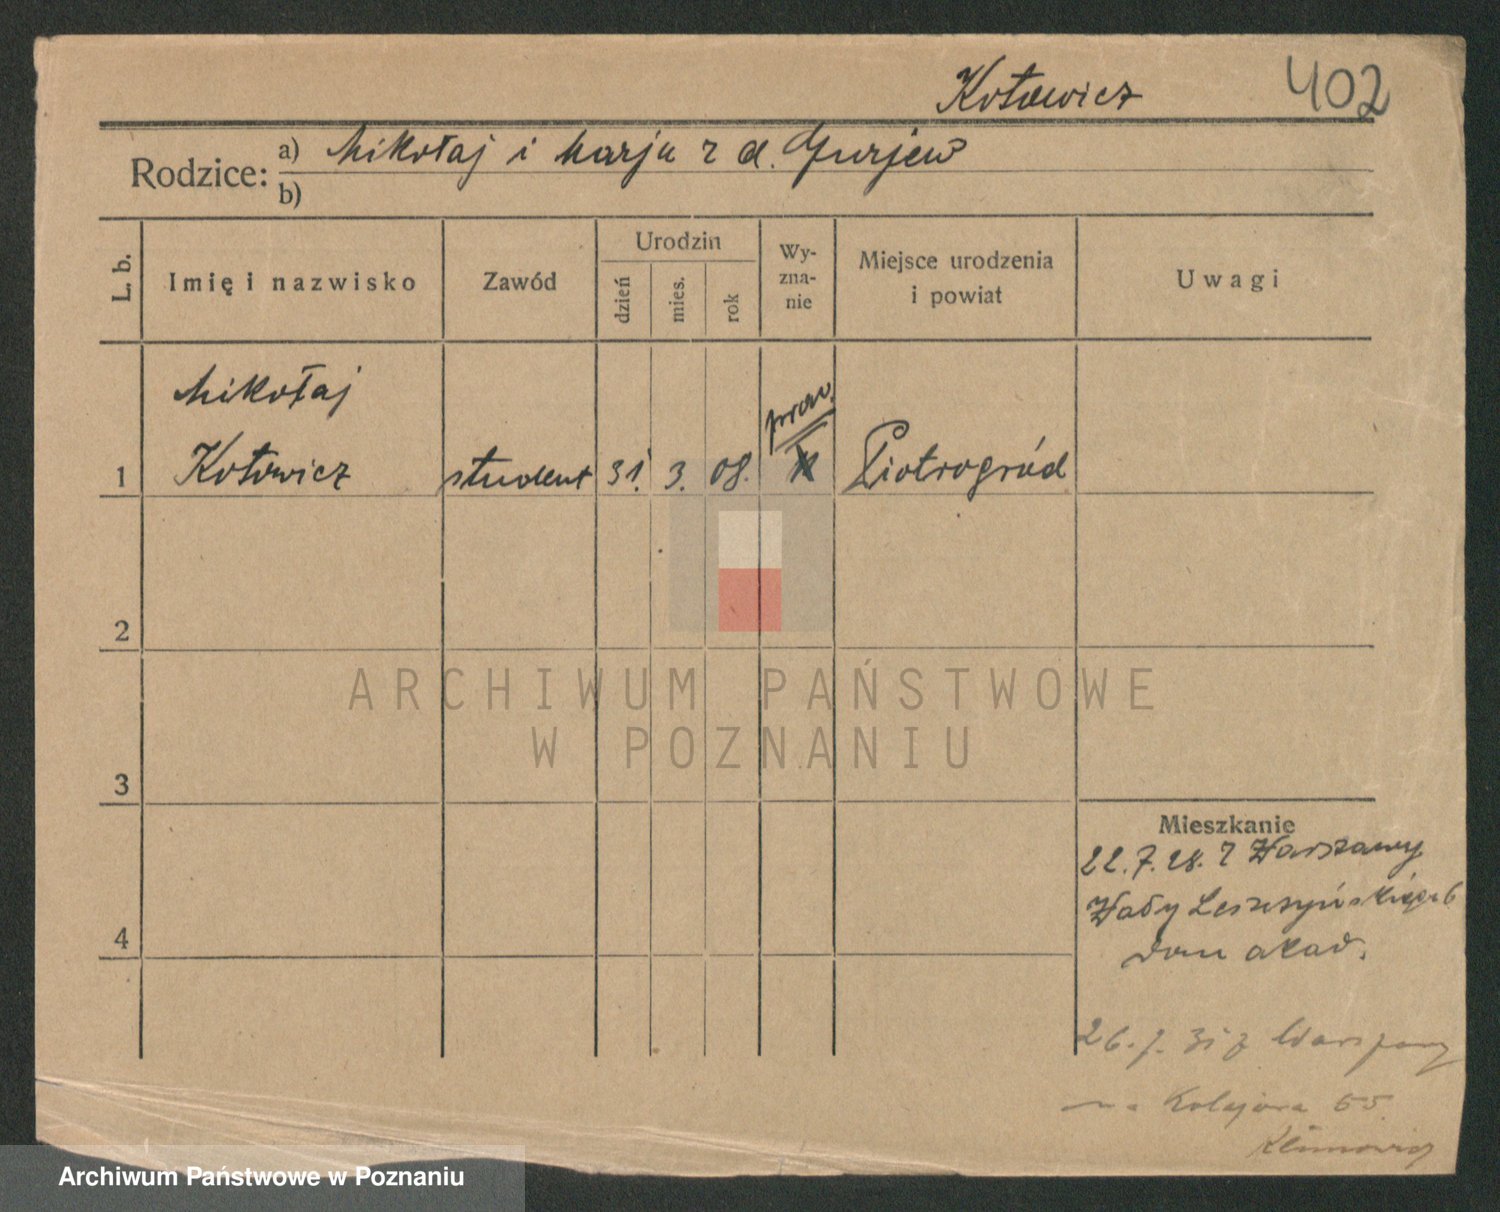 Kotowicz 402
Rodzice: a) Mikołaj i Marja z d. Gurjew
b)
L. b. Imię i nazwisko Zawód Urodzin dzień mies. rok Wy-zna-nie Miejsce urodzenia i powiat Uwagi
Mikołaj prav.
1 Kotowicz student 31. 3. 08. Piotrogród
2
3
4
ARCHIWUM PAŃSTWOWE
W POZNANIU
Mieszkanie
22.7.28. z Warszawy
Wały Leszczyńskiego 6
dom akad.
26.7. 31 z Warszawy
na Kolejowa 55
Klimowicz
Archiwum Państwowe w Poznaniu